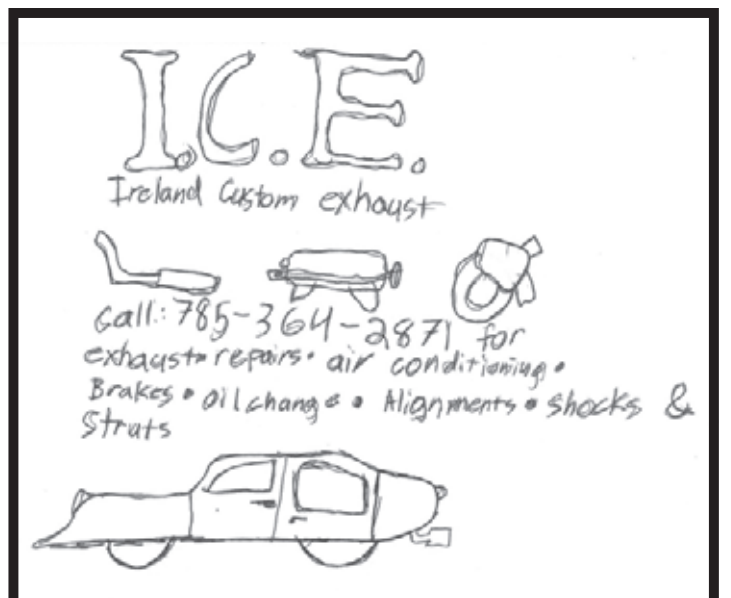 I.C.E.
Ireland Custom exhaust
call: 785-364-2871 for
exhaust • repairs • air conditioning •
Brakes • oil change • Alignments • shocks &
Struts